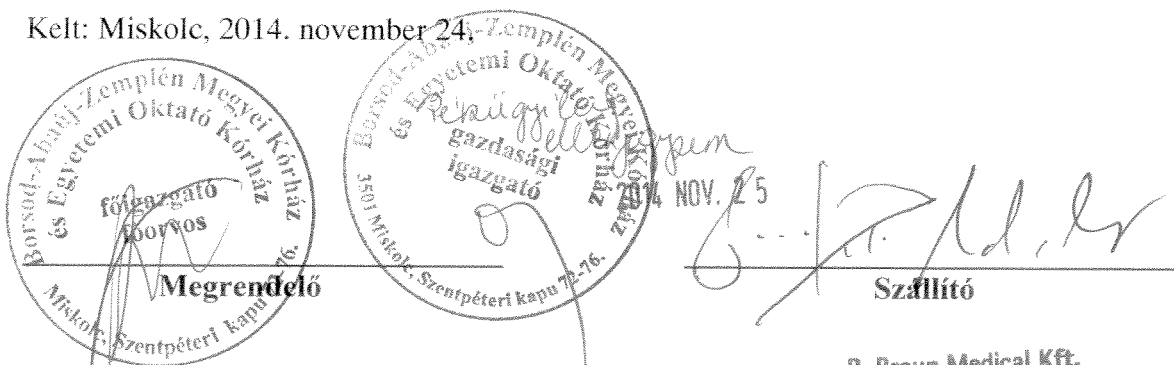 Kelt: Miskolc, 2014. november 24.
Borsod-Abaúj-Zemplén Megyei Kórház
és Egyetemi Oktató Kórház
főigazgató
főorvos
Miskolc, Szentpéteri kapu 72-76.
Borsod-Abaúj-Zemplén Megyei Kórház
és Egyetemi Oktató Kórház
Pénzügyileg
ellenjegyzem
gazdasági
igazgató
3501 Miskolc, Szentpéteri kapu 72-76.
2014 NOV. 25
Megrendelő
Szállító
B. Braun Medical Kft.